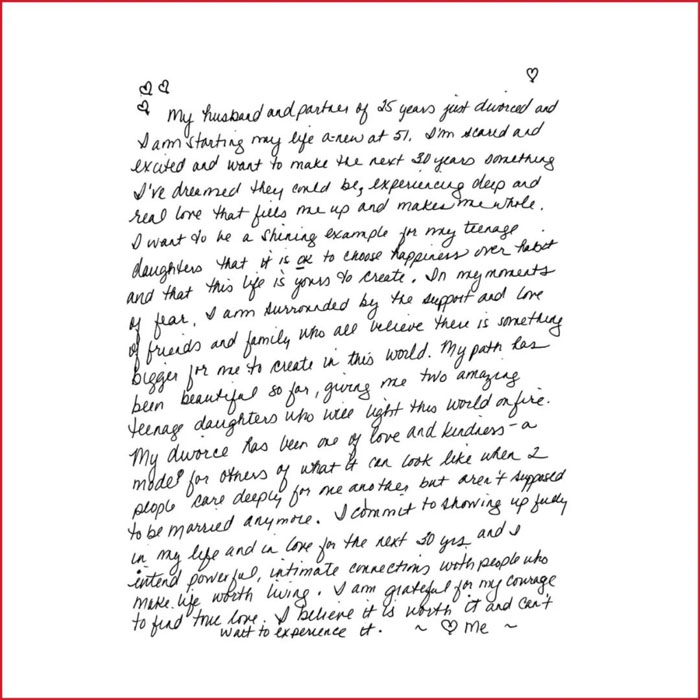 My husband and partner of 25 years just divorced and
I am starting my life a-new at 51. I'm scared and
excited and want to make the next 30 years something
I've dreamed they could be, experiencing deep and
real love that fills me up and makes me whole.
I want to be a shining example for my teenage
daughters that it is ok to choose happiness over habit
and that this life is yours to create. In my moments
of fear, I am surrounded by the support and love
of friends and family who all believe there is something
bigger for me to create in this world. My path has
been beautiful so far, giving me two amazing
teenage daughters who will light this world on fire.
My divorce has been one of love and kindness - a
model for others of what it can look like when 2
people care deeply for one another but aren't supposed
to be married anymore. I commit to showing up fully
in my life and in love for the next 30 yrs and I
intend powerful, intimate connections with people who
make life worth living. I am grateful for my courage
to find true love. I believe it is worth it and can't
wait to experience it. ~ ♡ Me ~